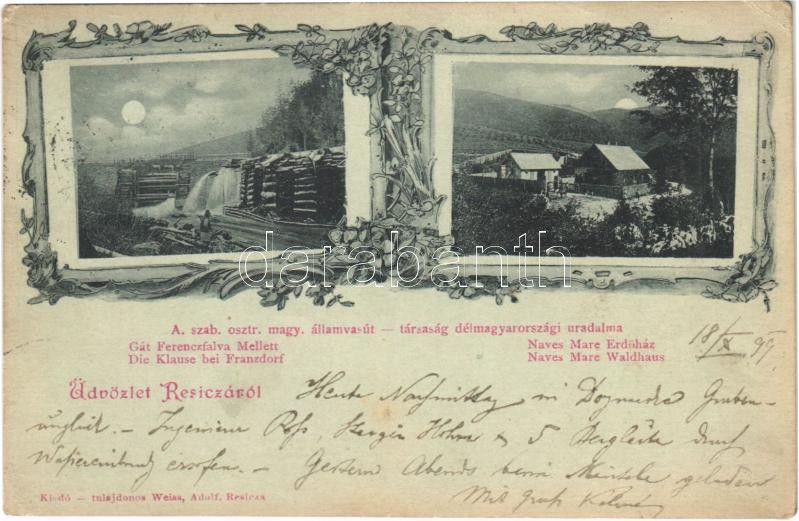 darabanth
A. szab. osztr. magy. államvasút — társaság délmagyarországi uradalma
Gát Ferenczfalva Mellett
Die Klause bei Franzdorf
Naves Mare Erdőház
Naves Mare Waldhaus
18/X 97.
Üdvözlet Resiczáról
Heute Nachmittag in Dognacska Gruben-
unglück. – Ingenieur 5 Bergleute durch
Wassereinbruch ersoffen. – Gestern Abends beim geladen
Mit Gruß Kálmán
Kiadó — tulajdonos Weiss, Adolf, Resicza